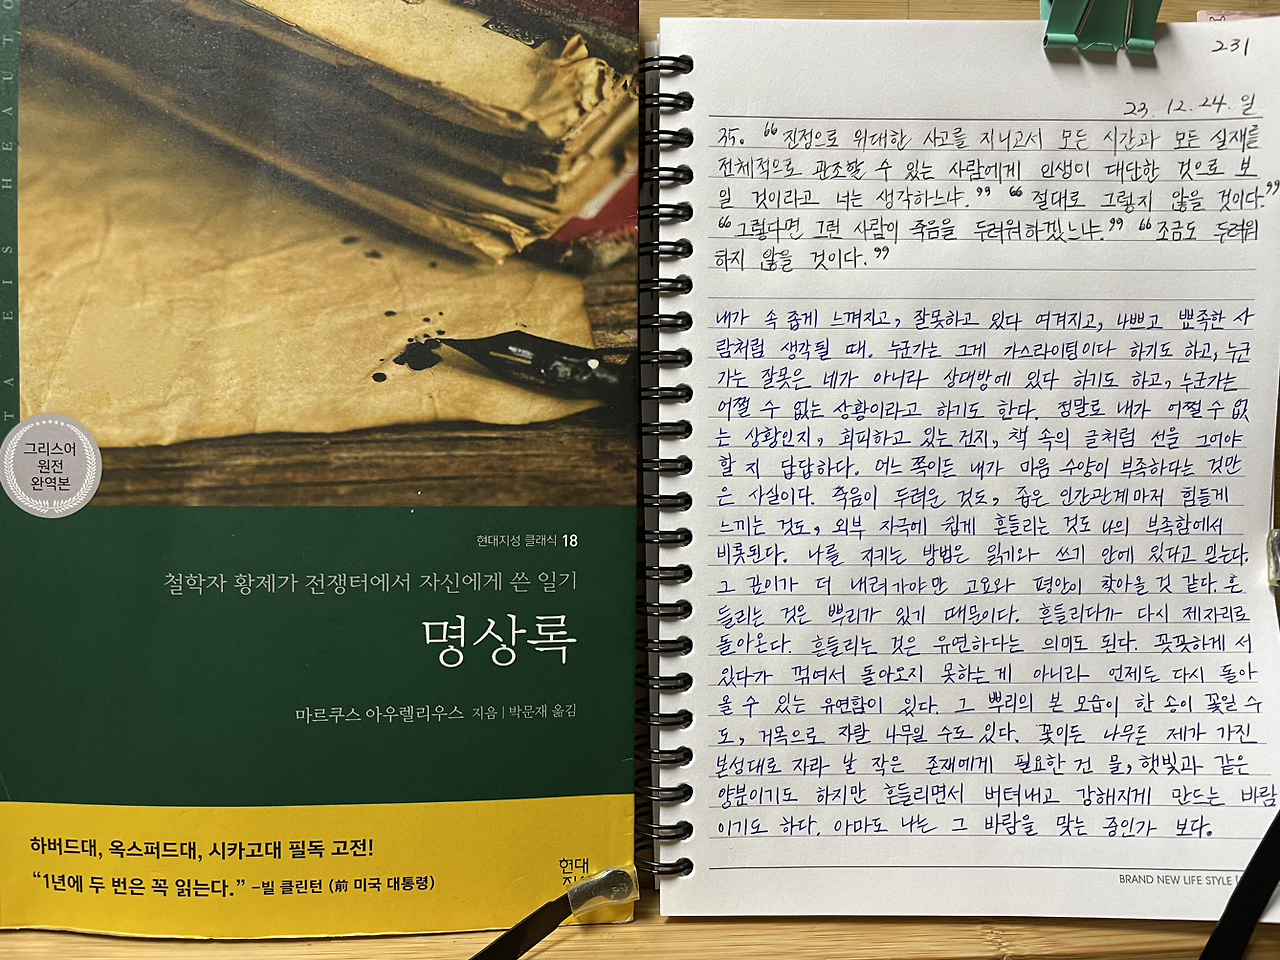 T A E I S H E A U T O
그리스어
원전
완역본
현대지성 클래식 18
철학자 황제가 전쟁터에서 자신에게 쓴 일기
명상록
마르쿠스 아우렐리우스 지음 | 박문재 옮김
하버드대, 옥스퍼드대, 시카고대 필독 고전!
“1년에 두 번은 꼭 읽는다.” –빌 클린턴 (前 미국 대통령)
현대
231
23. 12. 24. 일
35. “진정으로 위대한 사고를 지니고서 모든 시간과 모든 실재를
전체적으로 관조할 수 있는 사람에게 인생이 대단한 것으로 보
일 것이라고 너는 생각하느냐.” “절대로 그렇지 않을 것이다.”
“그렇다면 그런 사람이 죽음을 두려워하겠느냐.” “조금도 두려워
하지 않을 것이다.”
내가 속 좁게 느껴지고, 잘못하고 있다 여겨지고, 나쁘고 뾰족한 사
람처럼 생각될 때. 누군가는 그게 가스라이팅이다 하기도 하고, 누군
가는 잘못은 네가 아니라 상대방에 있다 하기도 하고, 누군가는
어쩔 수 없는 상황이라고 하기도 한다. 정말로 내가 어쩔 수 없
는 상황인지, 회피하고 있는 건지, 책 속의 글처럼 선을 그어야
할 지 답답하다. 어느 쪽이든 내가 마음 수양이 부족하다는 것만
은 사실이다. 죽음이 두려운 것도, 좁은 인간관계마저 힘들게
느끼는 것도, 외부 자극에 쉽게 흔들리는 것도 나의 부족함에서
비롯된다. 나를 지키는 방법은 읽기와 쓰기 안에 있다고 믿는다.
그 깊이가 더 내려가야만 고요와 평안이 찾아올 것 같다. 흔
들리는 것은 뿌리가 있기 때문이다. 흔들리다가 다시 제자리로
돌아온다. 흔들리는 것은 유연하다는 의미도 된다. 꼿꼿하게 서
있다가 꺾여서 돌아오지 못하는 게 아니라 언제든 다시 돌아
올 수 있는 유연함이 있다. 그 뿌리의 본 모습이 한 송이 꽃일 수
도, 거목으로 자랄 나무일 수도 있다. 꽃이든 나무든 제가 가진
본성대로 자라 날 작은 존재에게 필요한 건 물, 햇빛과 같은
양분이기도 하지만 흔들리면서 버텨내고 강해지게 만드는 바람
이기도 하다. 아마도 나는 그 바람을 맞는 중인가 보다.
BRAND NEW LIFE STYLE